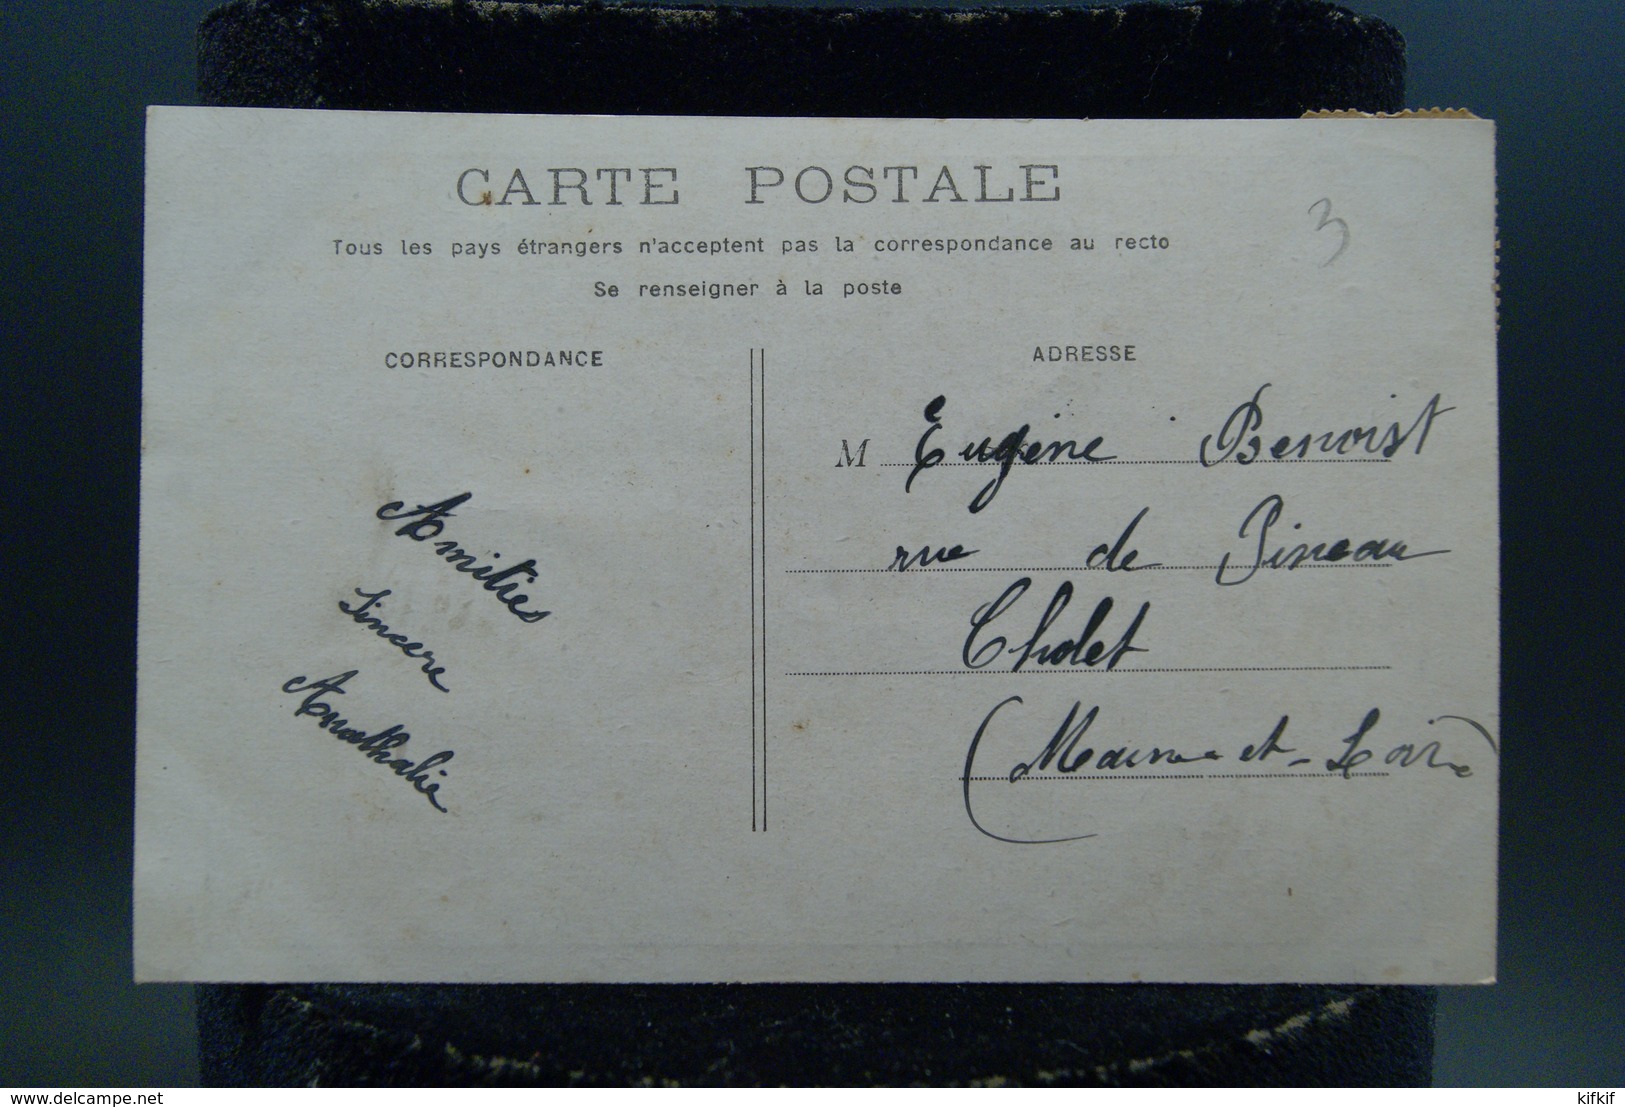 CARTE POSTALE
Tous les pays étrangers n'acceptent pas la correspondance au recto
Se renseigner à la poste
3
CORRESPONDANCE
Amitiés
Sincere
ADRESSE
M Eugéne Benoist
rue de Pineau
Cholet
(Maine et-Loire)
© delcampe.net
kifkif